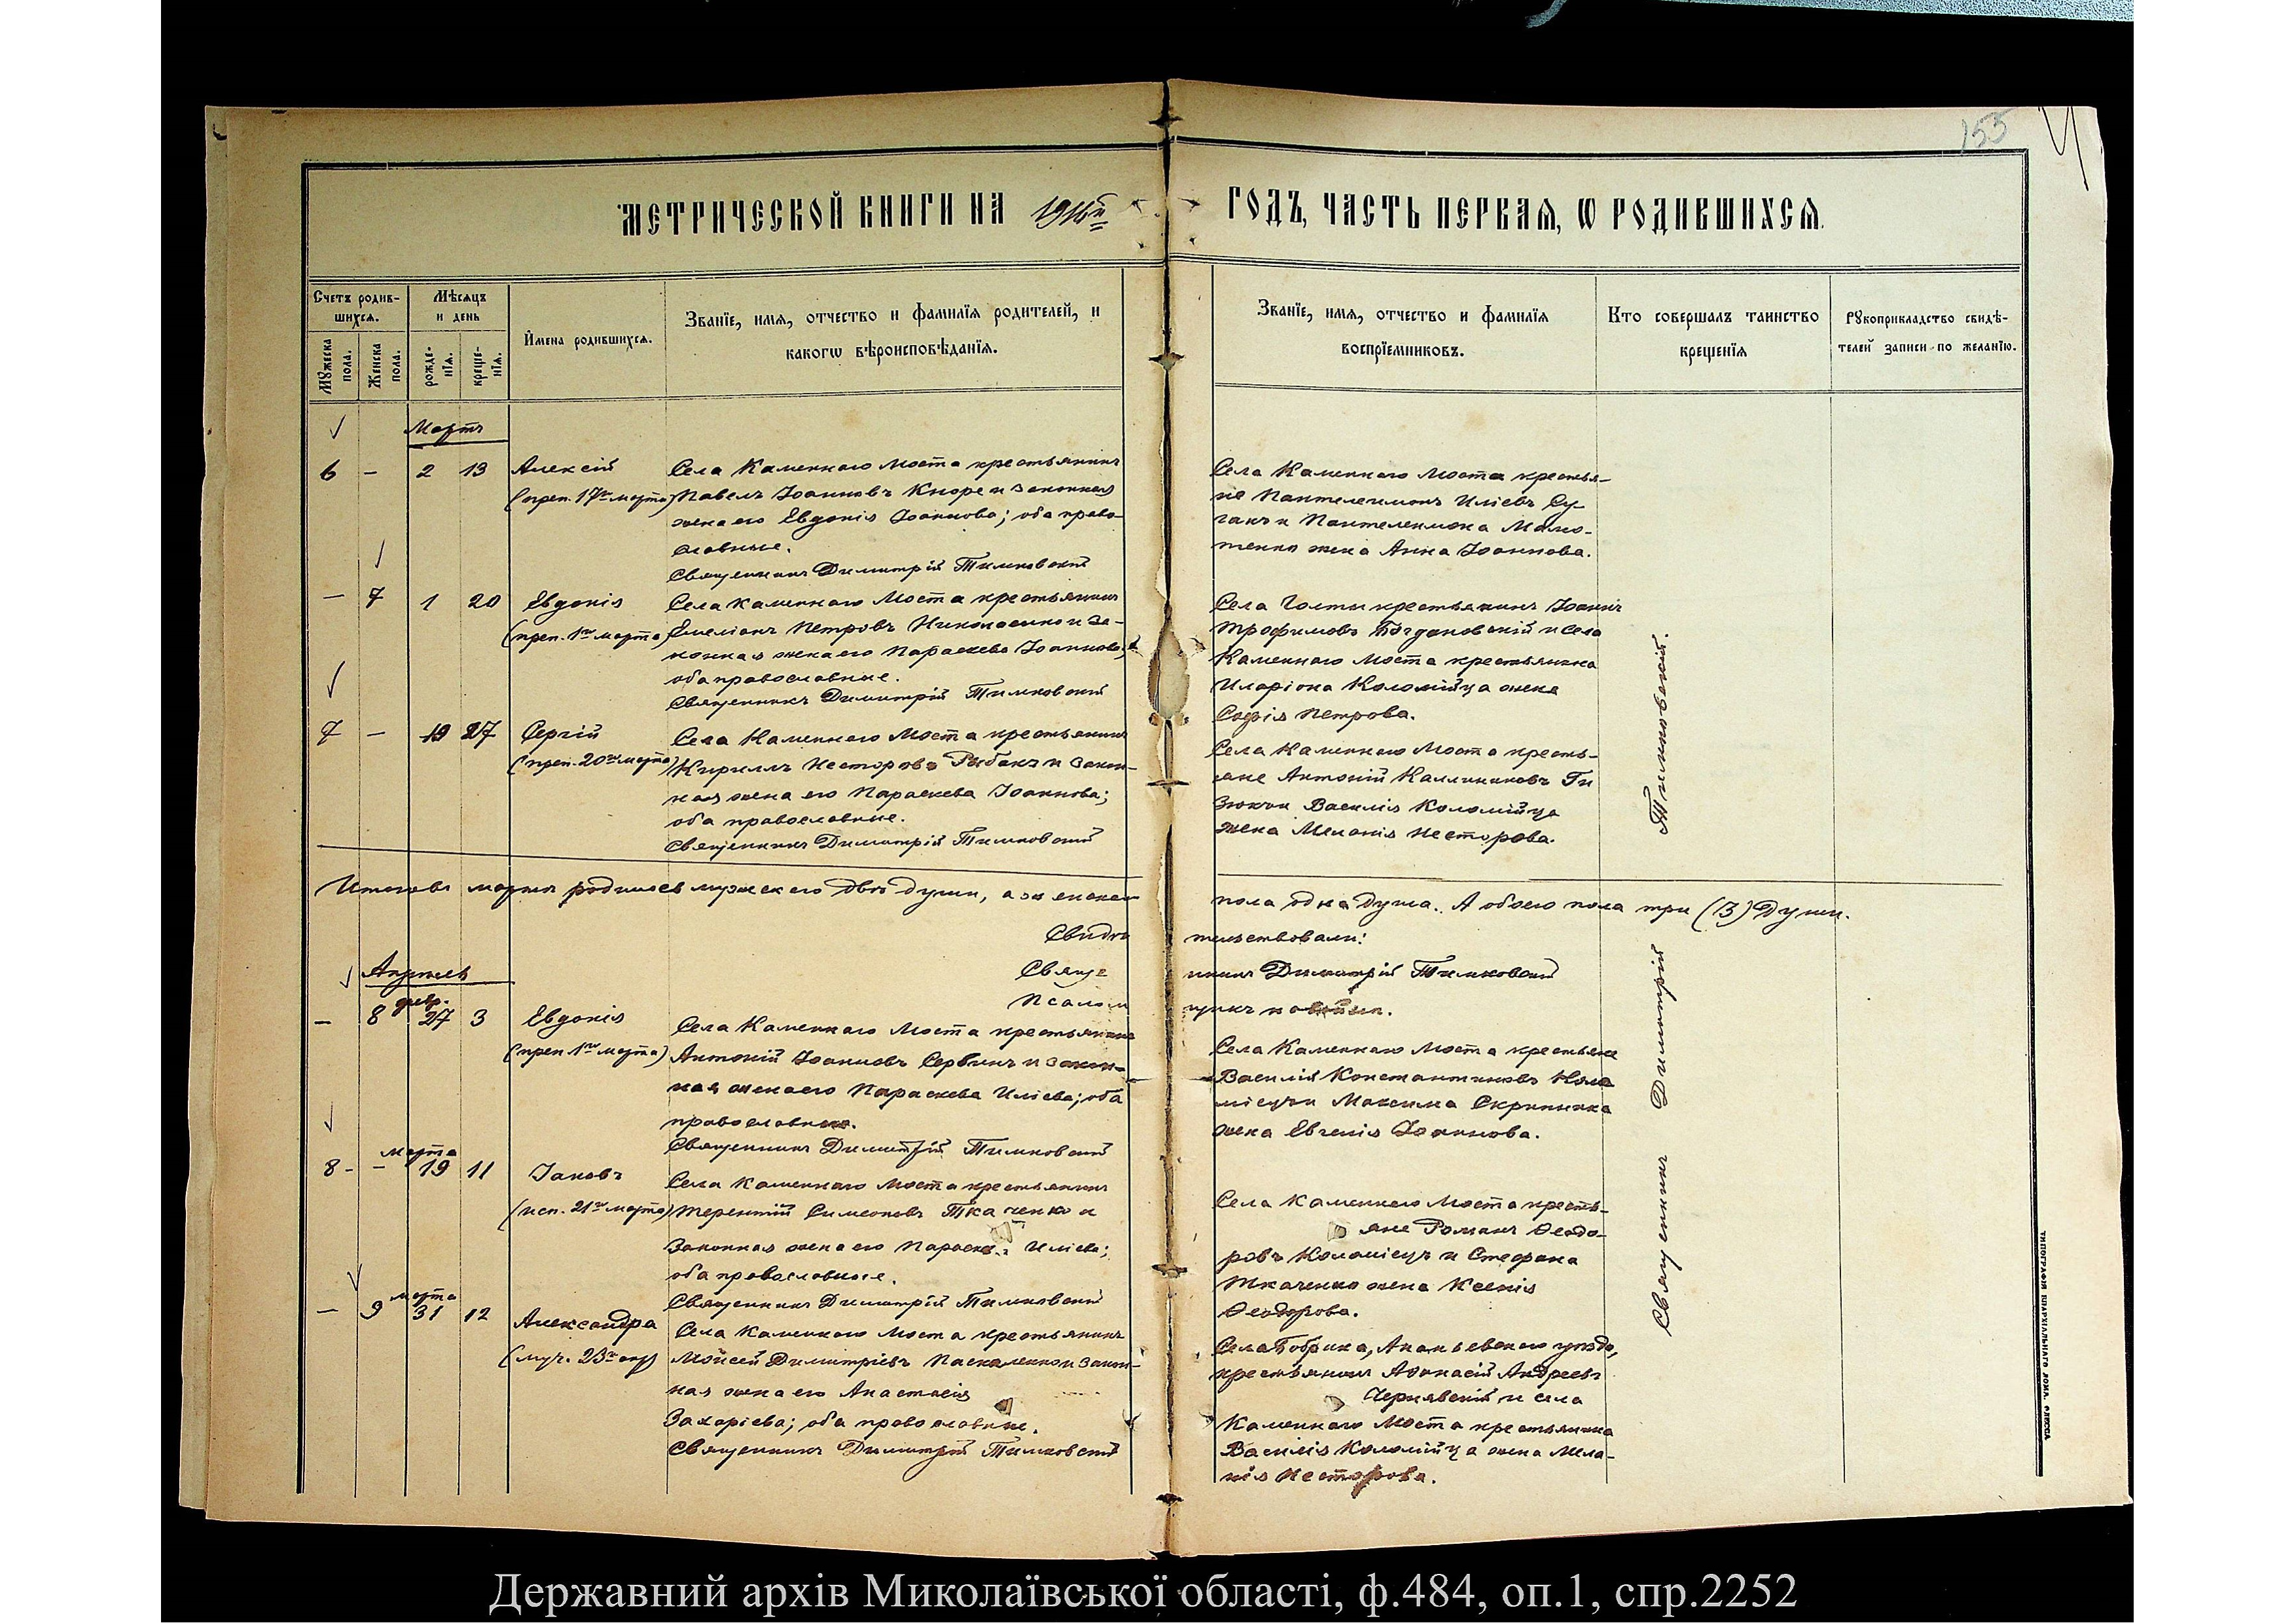 155
МЕТРИЧЕСКОЙ КНИГИ НА 1916й ГОДЪ, ЧАСТЬ ПЕРВАЯ, Ѡ РОДИВШИХСЯ.
Счетъ родив-
шихся.
Мужеска пола.
Женска пола.
Мѣсяцъ
и день
рожде-
нія.
креще-
нія.
Имена родившихся.
Званїе, имя, отчество и фамилїя родителей, и
какогѡ вѣроисповѣданїя.
Званїе, имя, отчество и фамилїя
воспрїемниковъ.
Кто совершалъ таинство
крещенїя
Рукоприкладство свидѣ-
телей записи по желанїю.
Мартъ
6 - 2 13 Алексій
(преп. 17го марта)
Села Каменнаго Моста крестьянинъ
Павелъ Іоанновъ Кноре и законная
жена его Евдокія Іоаннова; оба право-
славные.
Священникъ Димитрій Тимковскій
Села Каменнаго Моста крестья-
не Пантелеимонъ Иліевъ Су-
гакъ и Пантелеимона Мамо-
тенко жена Анна Іоаннова.
- 7 1 20 Евдокія
(преп. 1го марта)
Села Каменнаго Моста крестьянинъ
Емеліанъ Петровъ Николаенко и за-
конная жена его Параскева Іоаннова;
оба православные.
Священникъ Димитрій Тимковскій
Села Голты крестьянинъ Іоаннъ
Трофимовъ Богдановскій и села
Каменнаго Моста крестьянина
Иларіона Коломійца жена
Софія Петрова.
7 - 19 27 Сергій
(преп. 20го марта)
Села Каменнаго Моста крестьянинъ
Кириллъ Несторовъ Рыбакъ и закон-
ная жена его Параскева Іоаннова;
оба православные.
Священникъ Димитрій Тимковскій
Села Каменнаго Моста кресть-
яне Антоній Каллиниковъ Ги
зюкъ и Василія Коломійца
жена Меланія Несторова.
Итого въ мартѣ родилось мужскаго двѣ души, а женскаго пола одна душа. А обоего пола три (3) души.
Свидѣтельствовали:
Священникъ Димитрій Тимковскій
Псаломщикъ
Апрѣль
- 8 февр. 27 3 Евдокія
(преп. 1го марта)
Села Каменнаго Моста крестьянинъ
Антоній Іоанновъ Сербинъ и закон-
ная жена его Параскева Иліева; оба
православные.
Священникъ Димитрій Тимковскій
Села Каменнаго Моста крестьяне
Василій Константиновъ Коло
міецъ и Максима Скрипника
жена Евгенія Іоаннова.
8 - - марта 19 11 Іаковъ
(исп. 21го марта)
Села Каменнаго Моста крестьянинъ
Терентій Симеоновъ Ткаченко и
законная жена его Параскева Иліева;
оба православные.
Священникъ Димитрій Тимковскій
Села Каменнаго Моста кресть-
яне Романъ Ѳеодо-
ровъ Коломіецъ и Стефана
Ткаченко жена Ксенія
Ѳеодорова.
- 9 марта 31 12 Александра
(муч. 23го апр)
Села Каменнаго Моста крестьянинъ
Моисей Димитріевъ Паскаленко и закон-
ная жена его Анастасія
Захаріева; оба православные.
Священникъ Димитрій Тимковскій
Села Бобрика, Ананьевскаго уѣзда,
крестьянинъ Аѳанасій Андреевъ
Чернявскій и села
Каменнаго Моста крестьянина
Василія Коломійца жена Мела-
нія Несторова.
Священникъ Димитрій Тимковскій.
ТИПОГРАФІЯ ЕПАРХІАЛЬНАГО ДОМА, ОДЕССА
Державний архів Миколаївської області, ф.484, оп.1, спр.2252